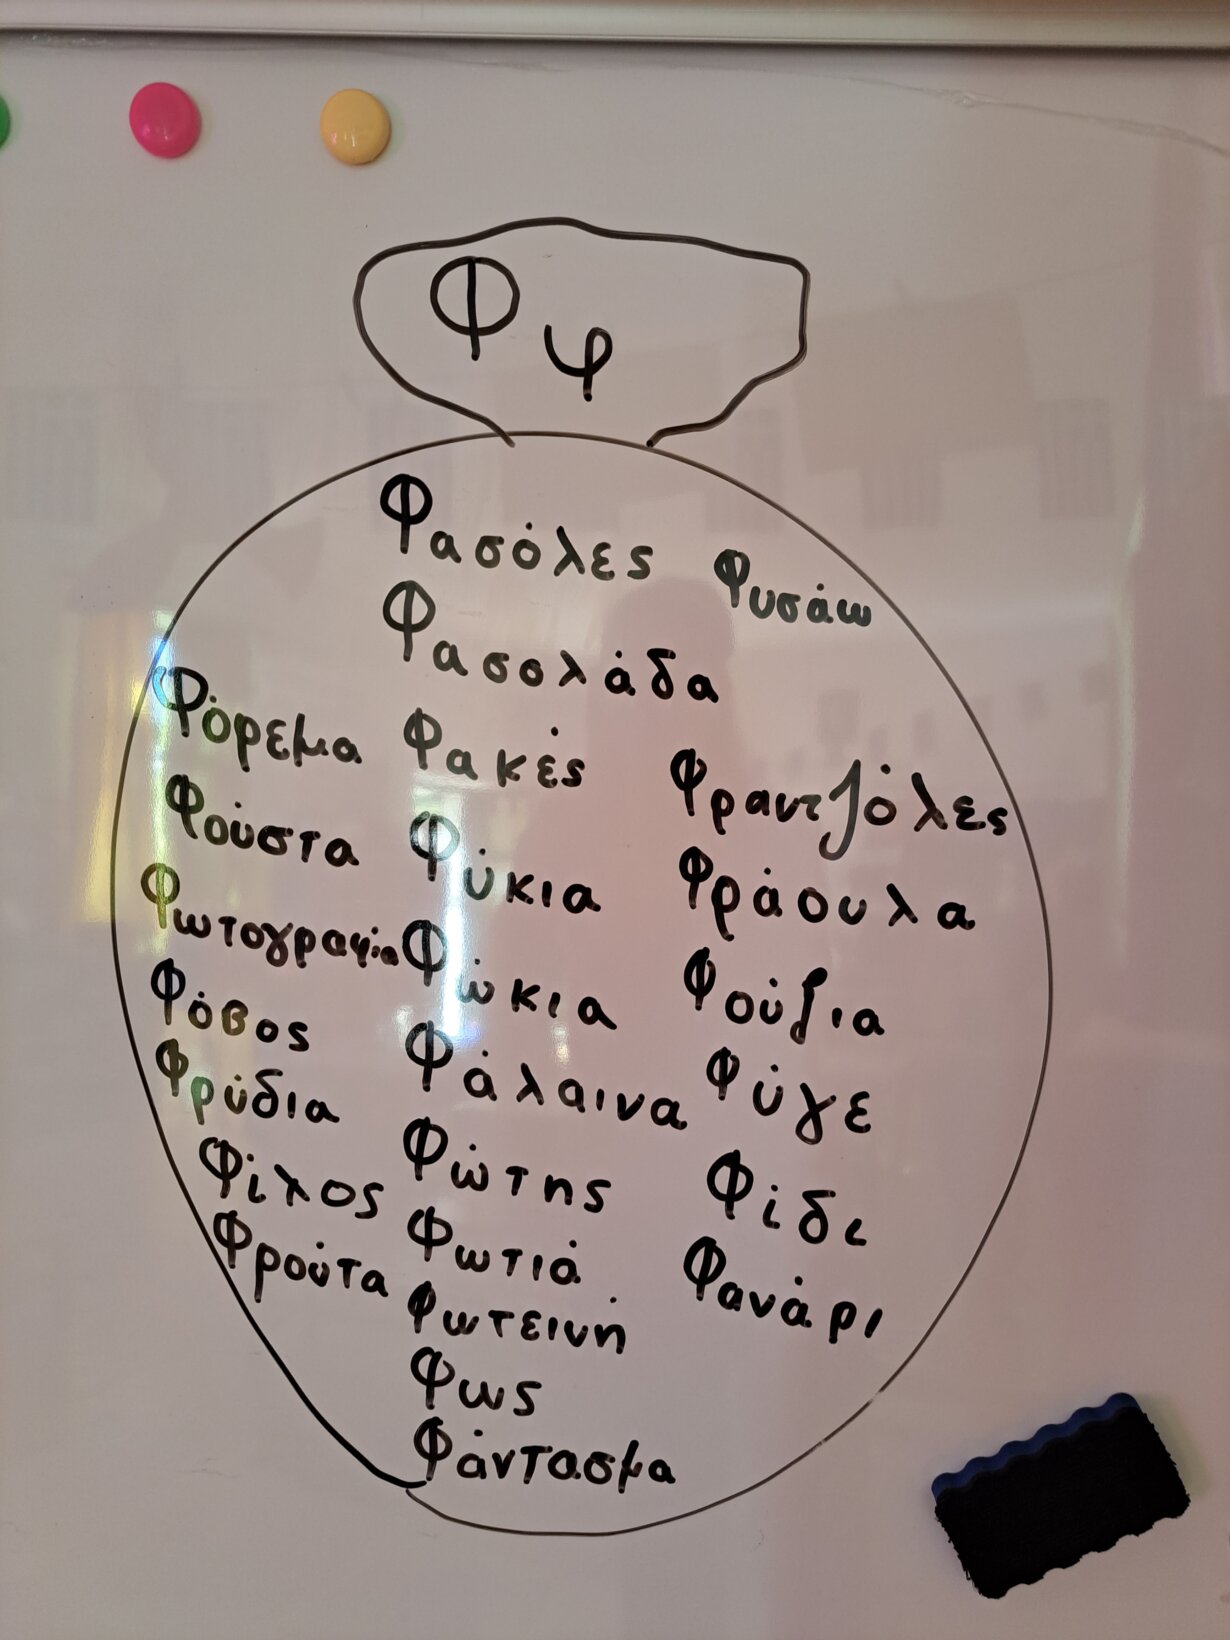 Φ φ
Φασόλες
Φυσάω
Φασολάδα
Φόρεμα
Φακές
Φραντζόλες
Φούστα
Φύκια
Φράουλα
Φωτογραφία
Φώκια
Φούζια
Φόβος
Φάλαινα
Φύγε
Φρύδια
Φώτης
Φίδι
Φίλος
Φωτιά
Φανάρι
Φρούτα
Φωτεινή
Φως
Φάντασμα